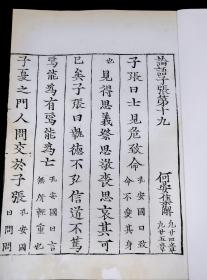 論語子張第十九
何晏集解 凡廿四章 凡廿五章
子張曰士見危致命 孔安國曰致命不愛其身
見得思義祭思敬喪思哀其可
已矣子張曰執德不弘信道不篤
焉能為有焉能為亡 孔安國曰言無所輕重也
子夏之門人問交於子張 孔安國曰問問